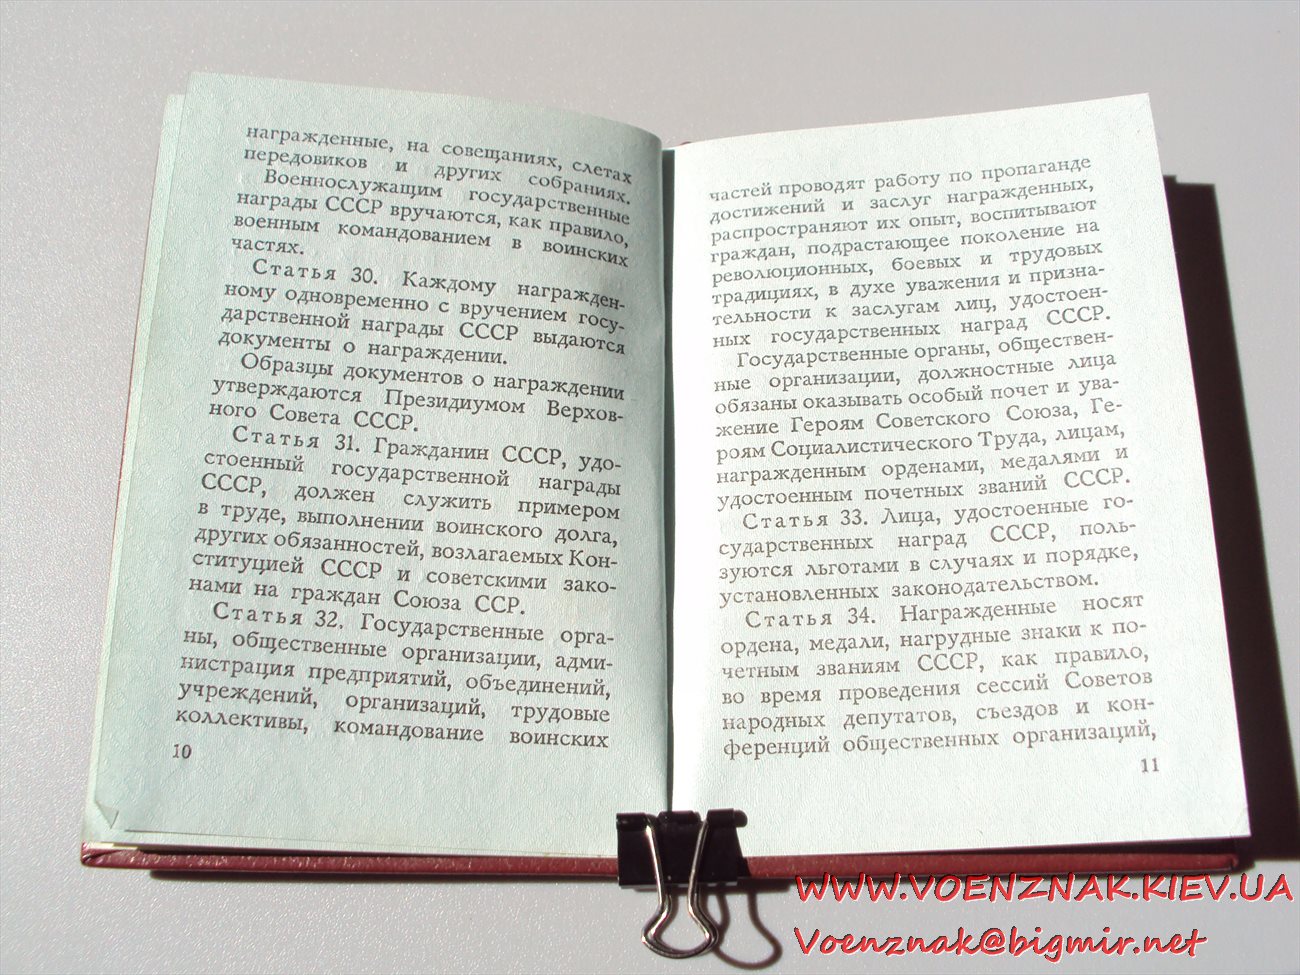 награжденные, на совещаниях, слетах
передовиков и других собраниях.
Военнослужащим государственные
награды СССР вручаются, как правило,
военным командованием в воинских
частях.
Статья 30. Каждому награжден-
ному одновременно с вручением госу-
дарственной награды СССР выдаются
документы о награждении.
Образцы документов о награждении
утверждаются Президиумом Верхов-
ного Совета СССР.
Статья 31. Гражданин СССР, удо-
стоенный государственной награды
СССР, должен служить примером
в труде, выполнении воинского долга,
других обязанностей, возлагаемых Кон-
ституцией СССР и советскими зако-
нами на граждан Союза ССР.
Статья 32. Государственные орга-
ны, общественные организации, адми-
нистрация предприятий, объединений,
учреждений, организаций, трудовые
коллективы, командование воинских
10
частей проводят работу по пропаганде
достижений и заслуг награжденных,
распространяют их опыт, воспитывают
граждан, подрастающее поколение на
революционных, боевых и трудовых
традициях, в духе уважения и призна-
тельности к заслугам лиц, удостоен-
ных государственных наград СССР.
Государственные органы, обществен-
ные организации, должностные лица
обязаны оказывать особый почет и ува-
жение Героям Советского Союза, Ге-
роям Социалистического Труда, лицам,
награжденным орденами, медалями и
удостоенным почетных званий СССР.
Статья 33. Лица, удостоенные го-
сударственных наград СССР, поль-
зуются льготами в случаях и порядке,
установленных законодательством.
Статья 34. Награжденные носят
ордена, медали, нагрудные знаки к по-
четным званиям СССР, как правило,
во время проведения сессий Советов
народных депутатов, съездов и кон-
ференций общественных организаций,
11
WWW.VOENZNAK.KIEV.UA
Voenznak@bigmir.net